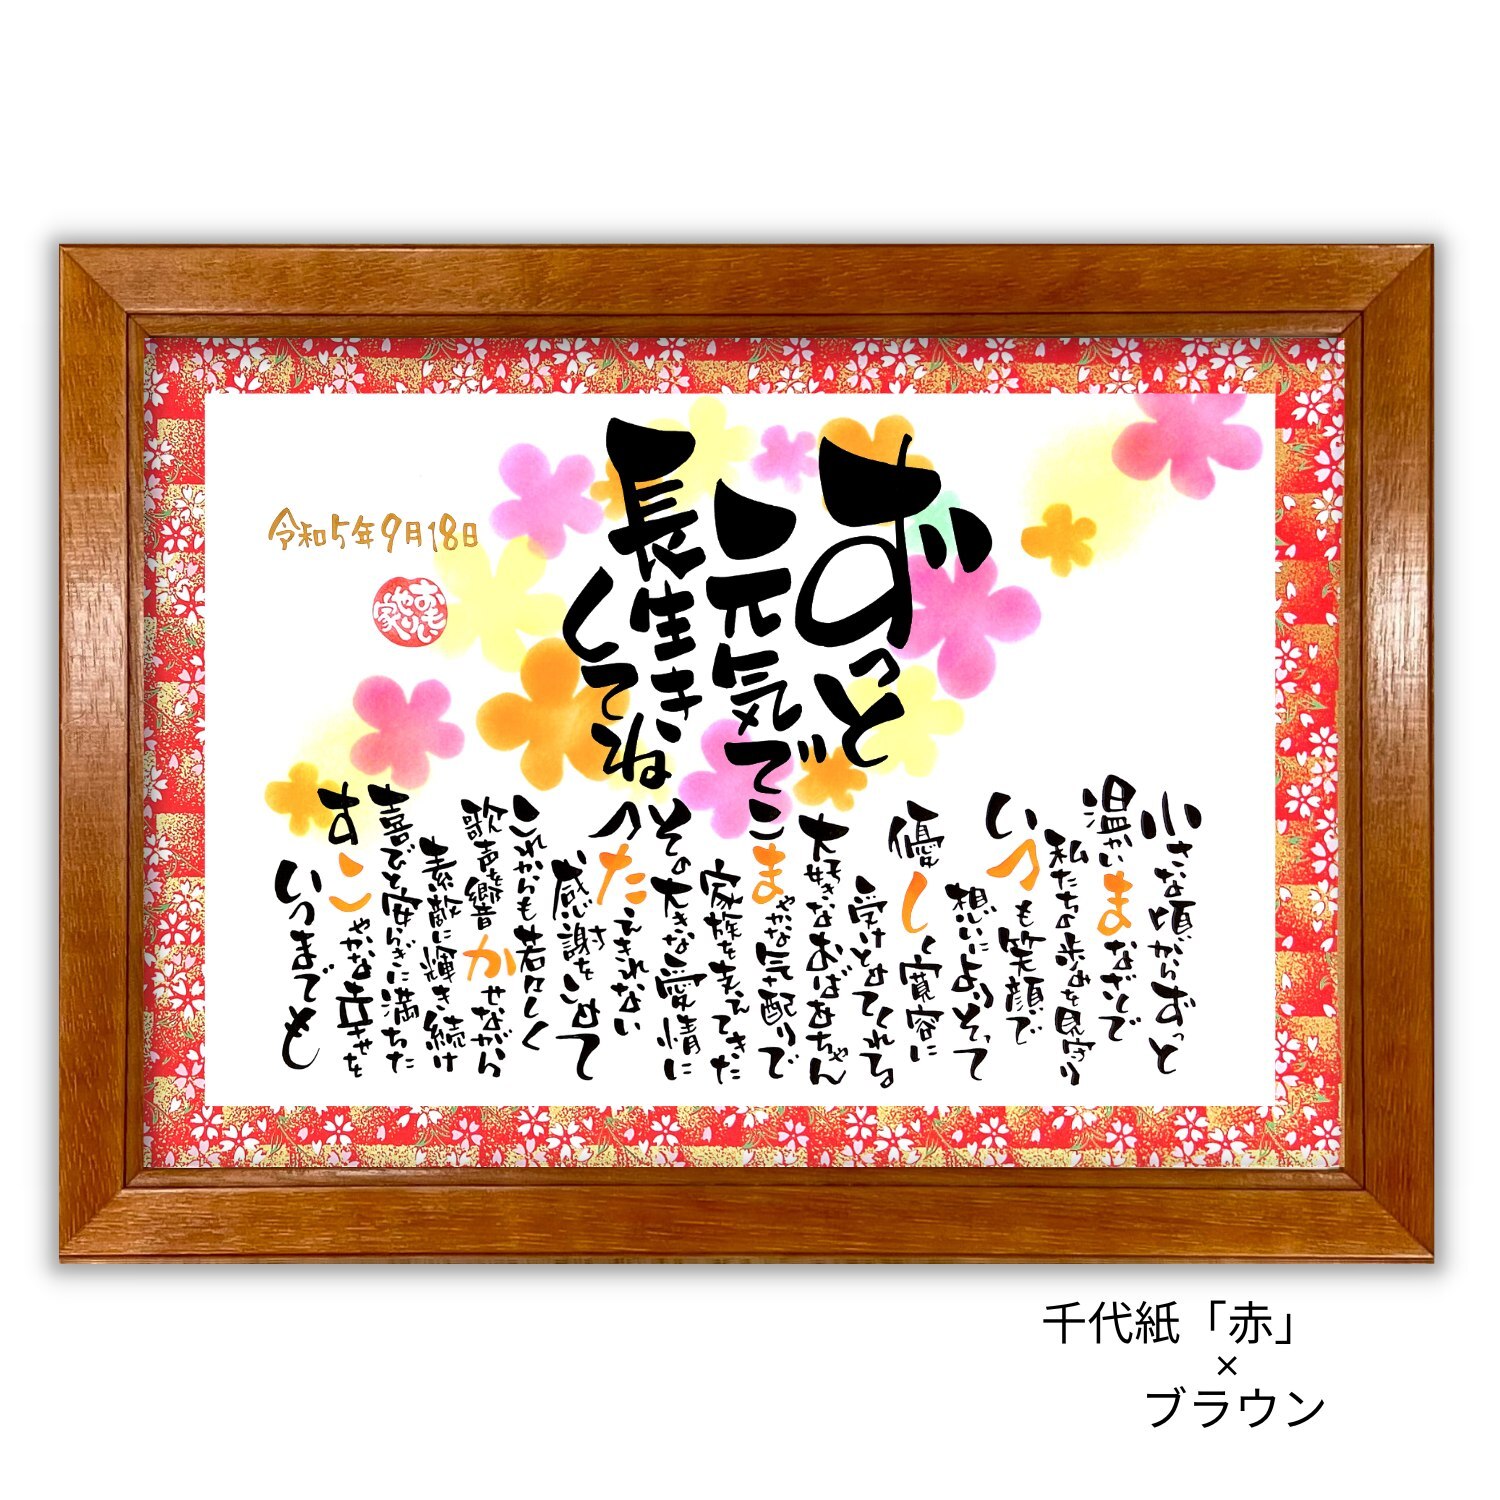 ずっと
元気で
長生き
してね
令和5年9月18日
おもいやり家
小さな頃からずっと
温かいまなざしで
私たちの歩みを見守り
いつも笑顔で
想いによりそって
優しく寛容に
受けとめてくれる
大好きなおばあちゃん
こまやかな気配りで
家族を支えてきた
その大きな愛情に
つたえきれない
感謝をこめて
これからも若々しく
歌声を響かせながら
素敵に輝き続け
喜びと安らぎに満ちた
すこやかな幸せを
いつまでも
千代紙「赤」
×
ブラウン